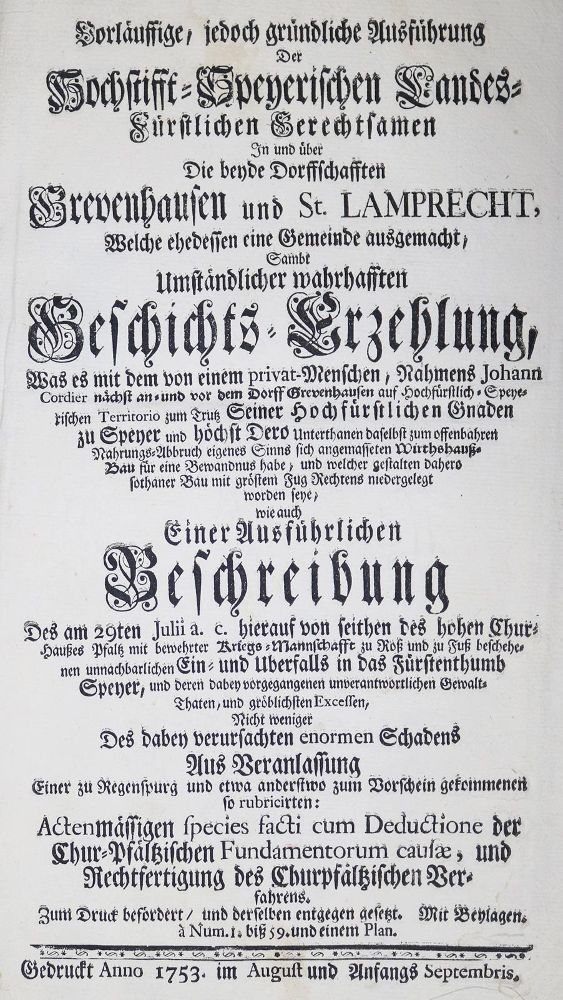 Vorläuffige, jedoch gründliche Ausführung
Der
Hochstifft-Speyerischen Landes-
Fürstlichen Gerechtsamen
In und über
Die beyde Dorffschafften
Grevenhausen und St. LAMPRECHT,
Welche ehedessen eine Gemeinde ausgemacht,
Sambt
Umständlicher wahrhafften
Geschichts-Erzehlung,
Was es mit dem von einem privat-Menschen, Nahmens Johann
Cordier nächst an- und vor dem Dorff Grevenhausen auf Hochfürstlich-Speye-
rischen Territorio zum Trutz Seiner Hochfürstlichen Gnaden
zu Speyer und höchst Dero Unterthanen daselbst zum offenbahren
Nahrungs-Abbruch eigenes Sinns sich angemasseten Wirthshauß-
Bau für eine Bewandnus habe, und welcher gestalten dahero
sothaner Bau mit gröstem Fug Rechtens niedergelegt
worden seye,
wie auch
Einer Ausführlichen
Beschreibung
Des am 29ten Julii a. c. hierauf von seithen des hohen Chur-
Haußes Pfaltz mit bewehrter Kriegs-Mannschafft zu Röß und zu Fuß beschehe-
nen unnachbarlichen Ein- und Uberfalls in das Fürstenthumb
Speyer, und deren dabey vorgegangenen unverantwortlichen Gewalt-
Thaten, und gröblichsten Excessen,
Nicht weniger
Des dabey verursachten enormen Schadens
Aus Veranlassung
Einer zu Regenspurg und etwa anderstwo zum Vorschein gekommenen
so rubricirten:
Actenmässigen species facti cum Deductione der
Chur-Pfältzischen Fundamentorum causæ, und
Rechtfertigung des Churpfältzischen Ver-
fahrens.
Zum Druck befördert, und derselben entgegen gesetzt. Mit Beylagen.
à Num. 1. biß 59. und einem Plan.
Gedruckt Anno 1753. im August und Anfangs Septembris.